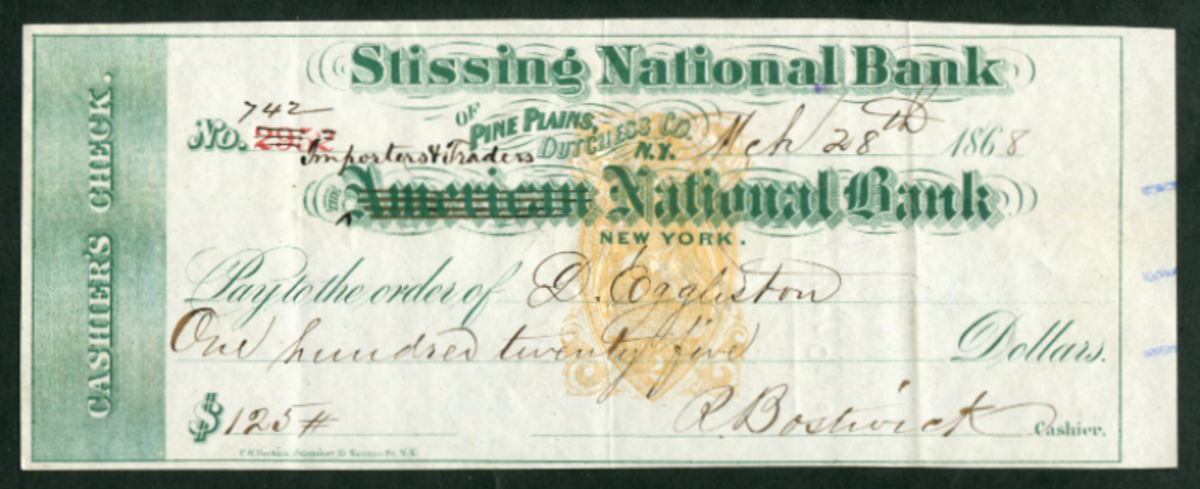 CASHIER'S CHECK.
Stissing National Bank
OF PINE PLAINS, DUTCHESS CO. N.Y.
No. 742
Mch 28th 1868
Importers & Traders
THE American National Bank
NEW YORK.
Pay to the order of D. Eggliston
One hundred twenty five Dollars.
$125 #
R. Bostwick Cashier.